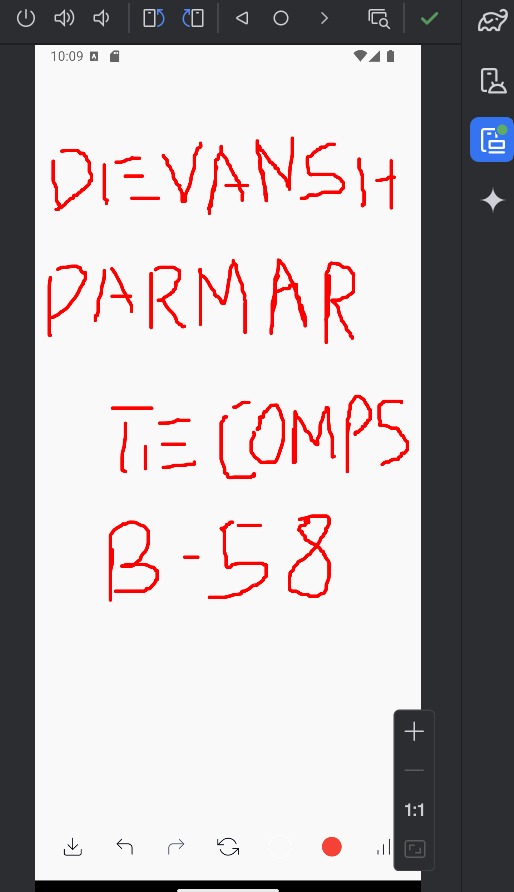 10:09
DEVANSH
PARMAR
TE COMPS
B-58
1:1